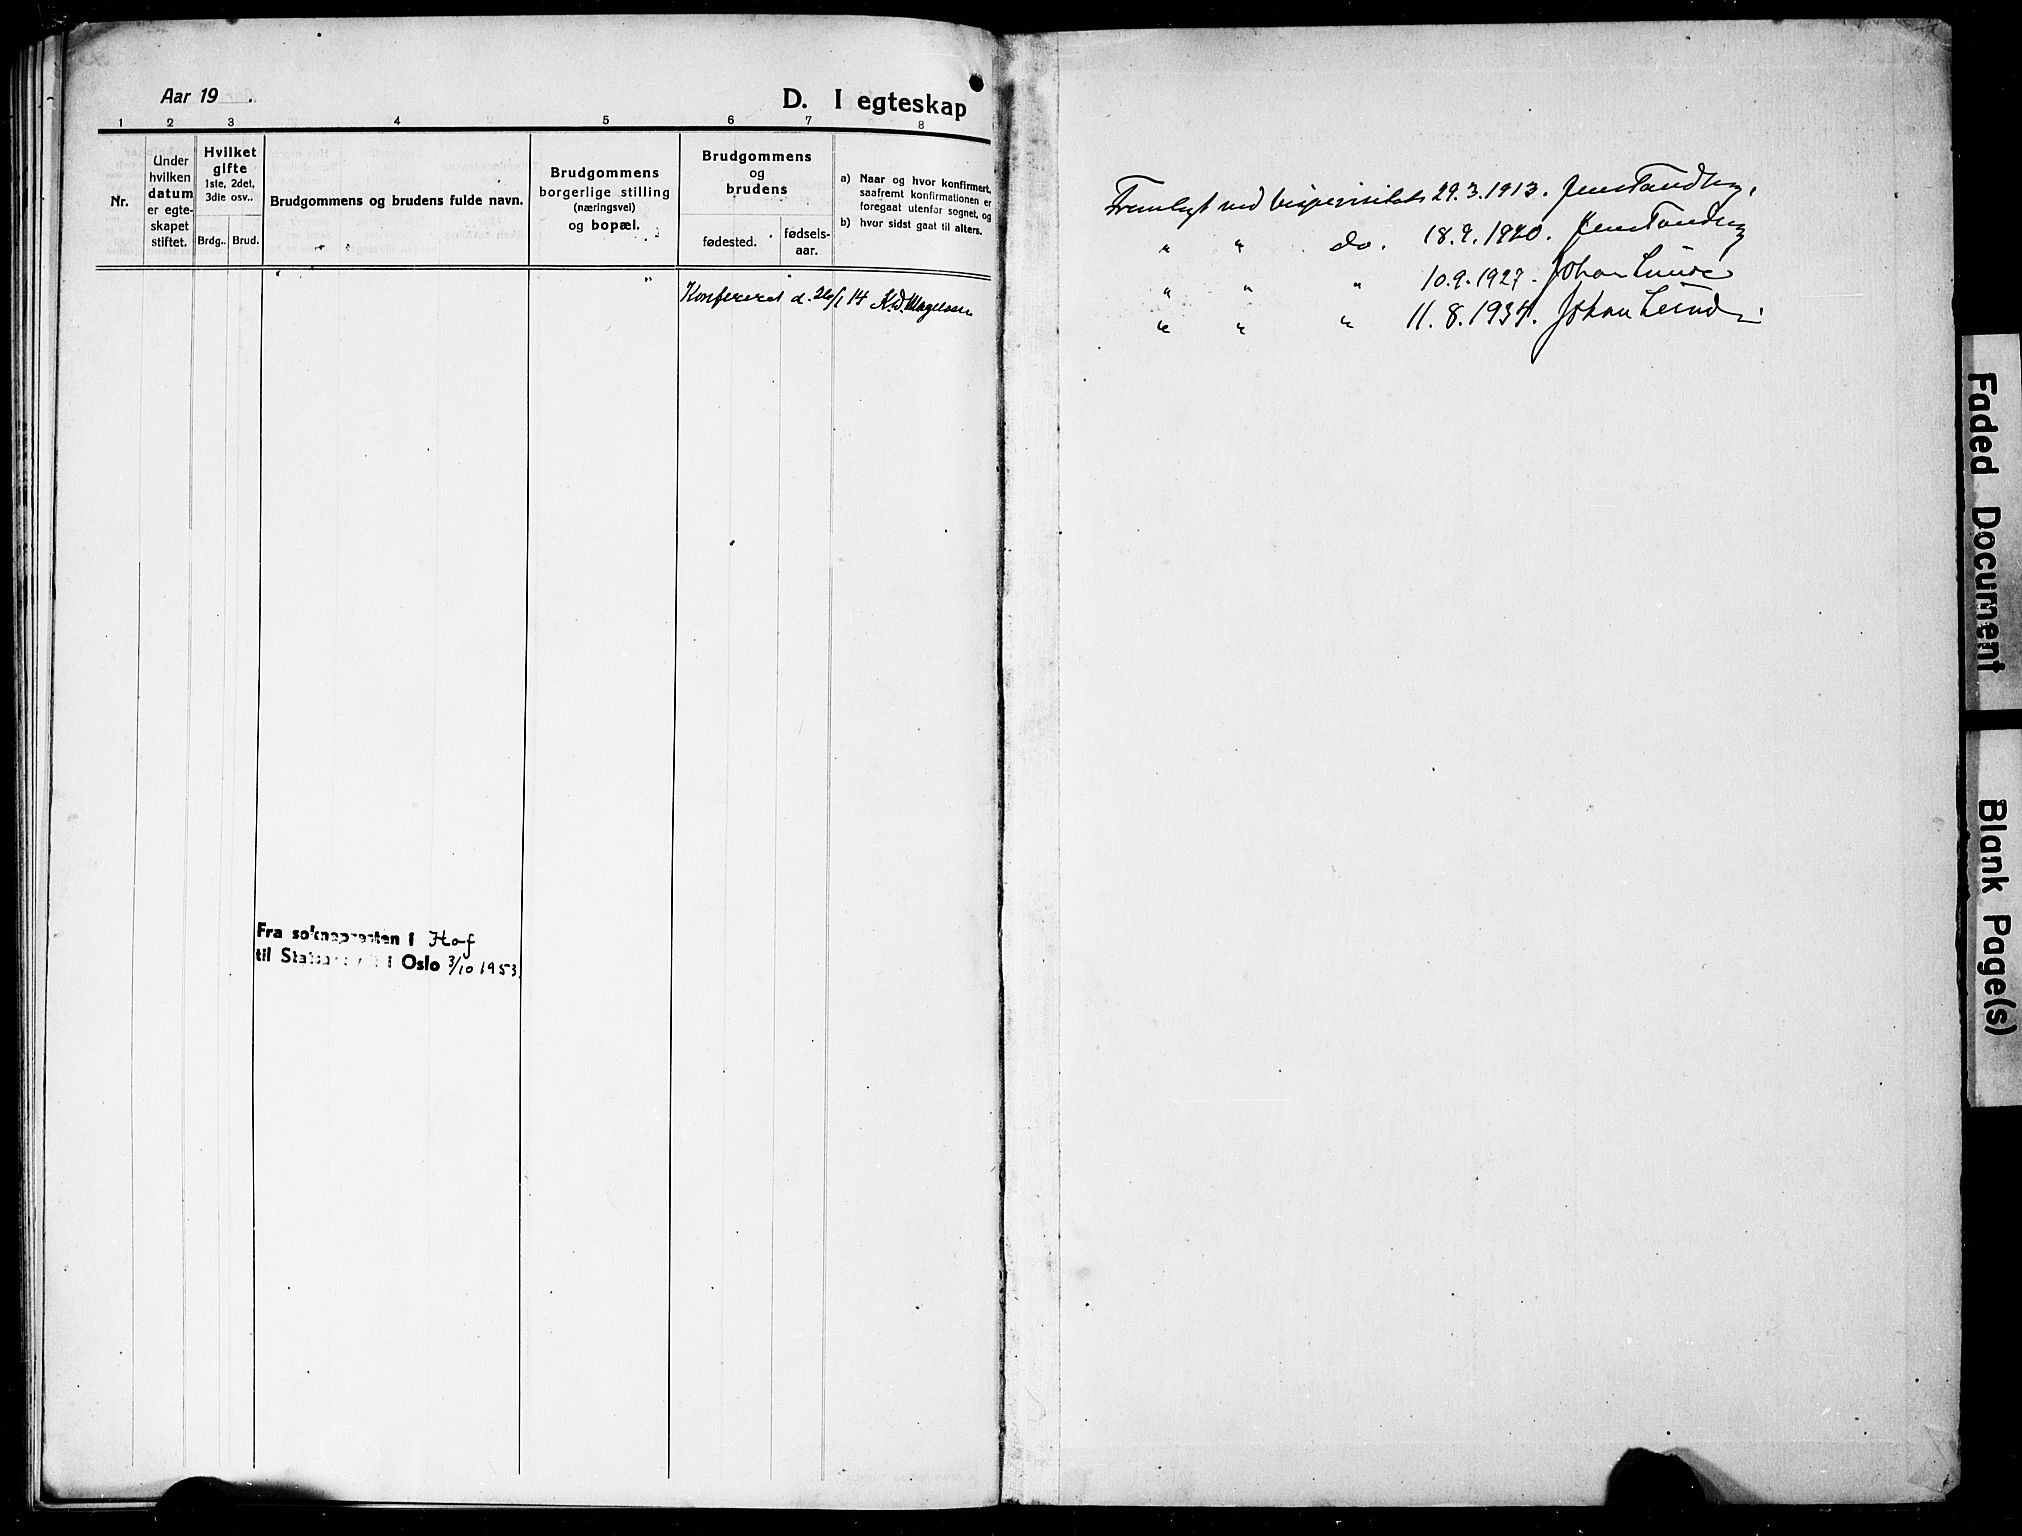 Aar 19 .
D. I egteskap
1 2 3 4 5 6 7 8
Nr.
Under
hvilken
datum
er egte-
skapet
stiftet.
Hvilket
gifte
1ste, 2det,
3die osv..
Brdg.. Brud.
Brudgommens og brudens fulde navn.
Brudgommens
borgerlige stilling
(næringsvei)
og bopæl.
Brudgommens
og
brudens
fødested.
fødsels-
aar.
a) Naar og hvor konfirmert,
saafremt konfirmationen er
foregaat utenfor sognet, og
b) hvor sidst gaat til alters.
Konfereret d. 26/1 14
Fra soknepresten i Hof
til Statsarkivet i Oslo 3/10 1953.
Fremlagt ved bispevisitats 29.3.1913. Jens Tandberg.
" " do. 18.9.1920. Jens Tandberg
" " " 10.9.1927. Johan Lunde
" " " 11.8.1934. Johan Lunde
Faded Document
Blank Page(s)